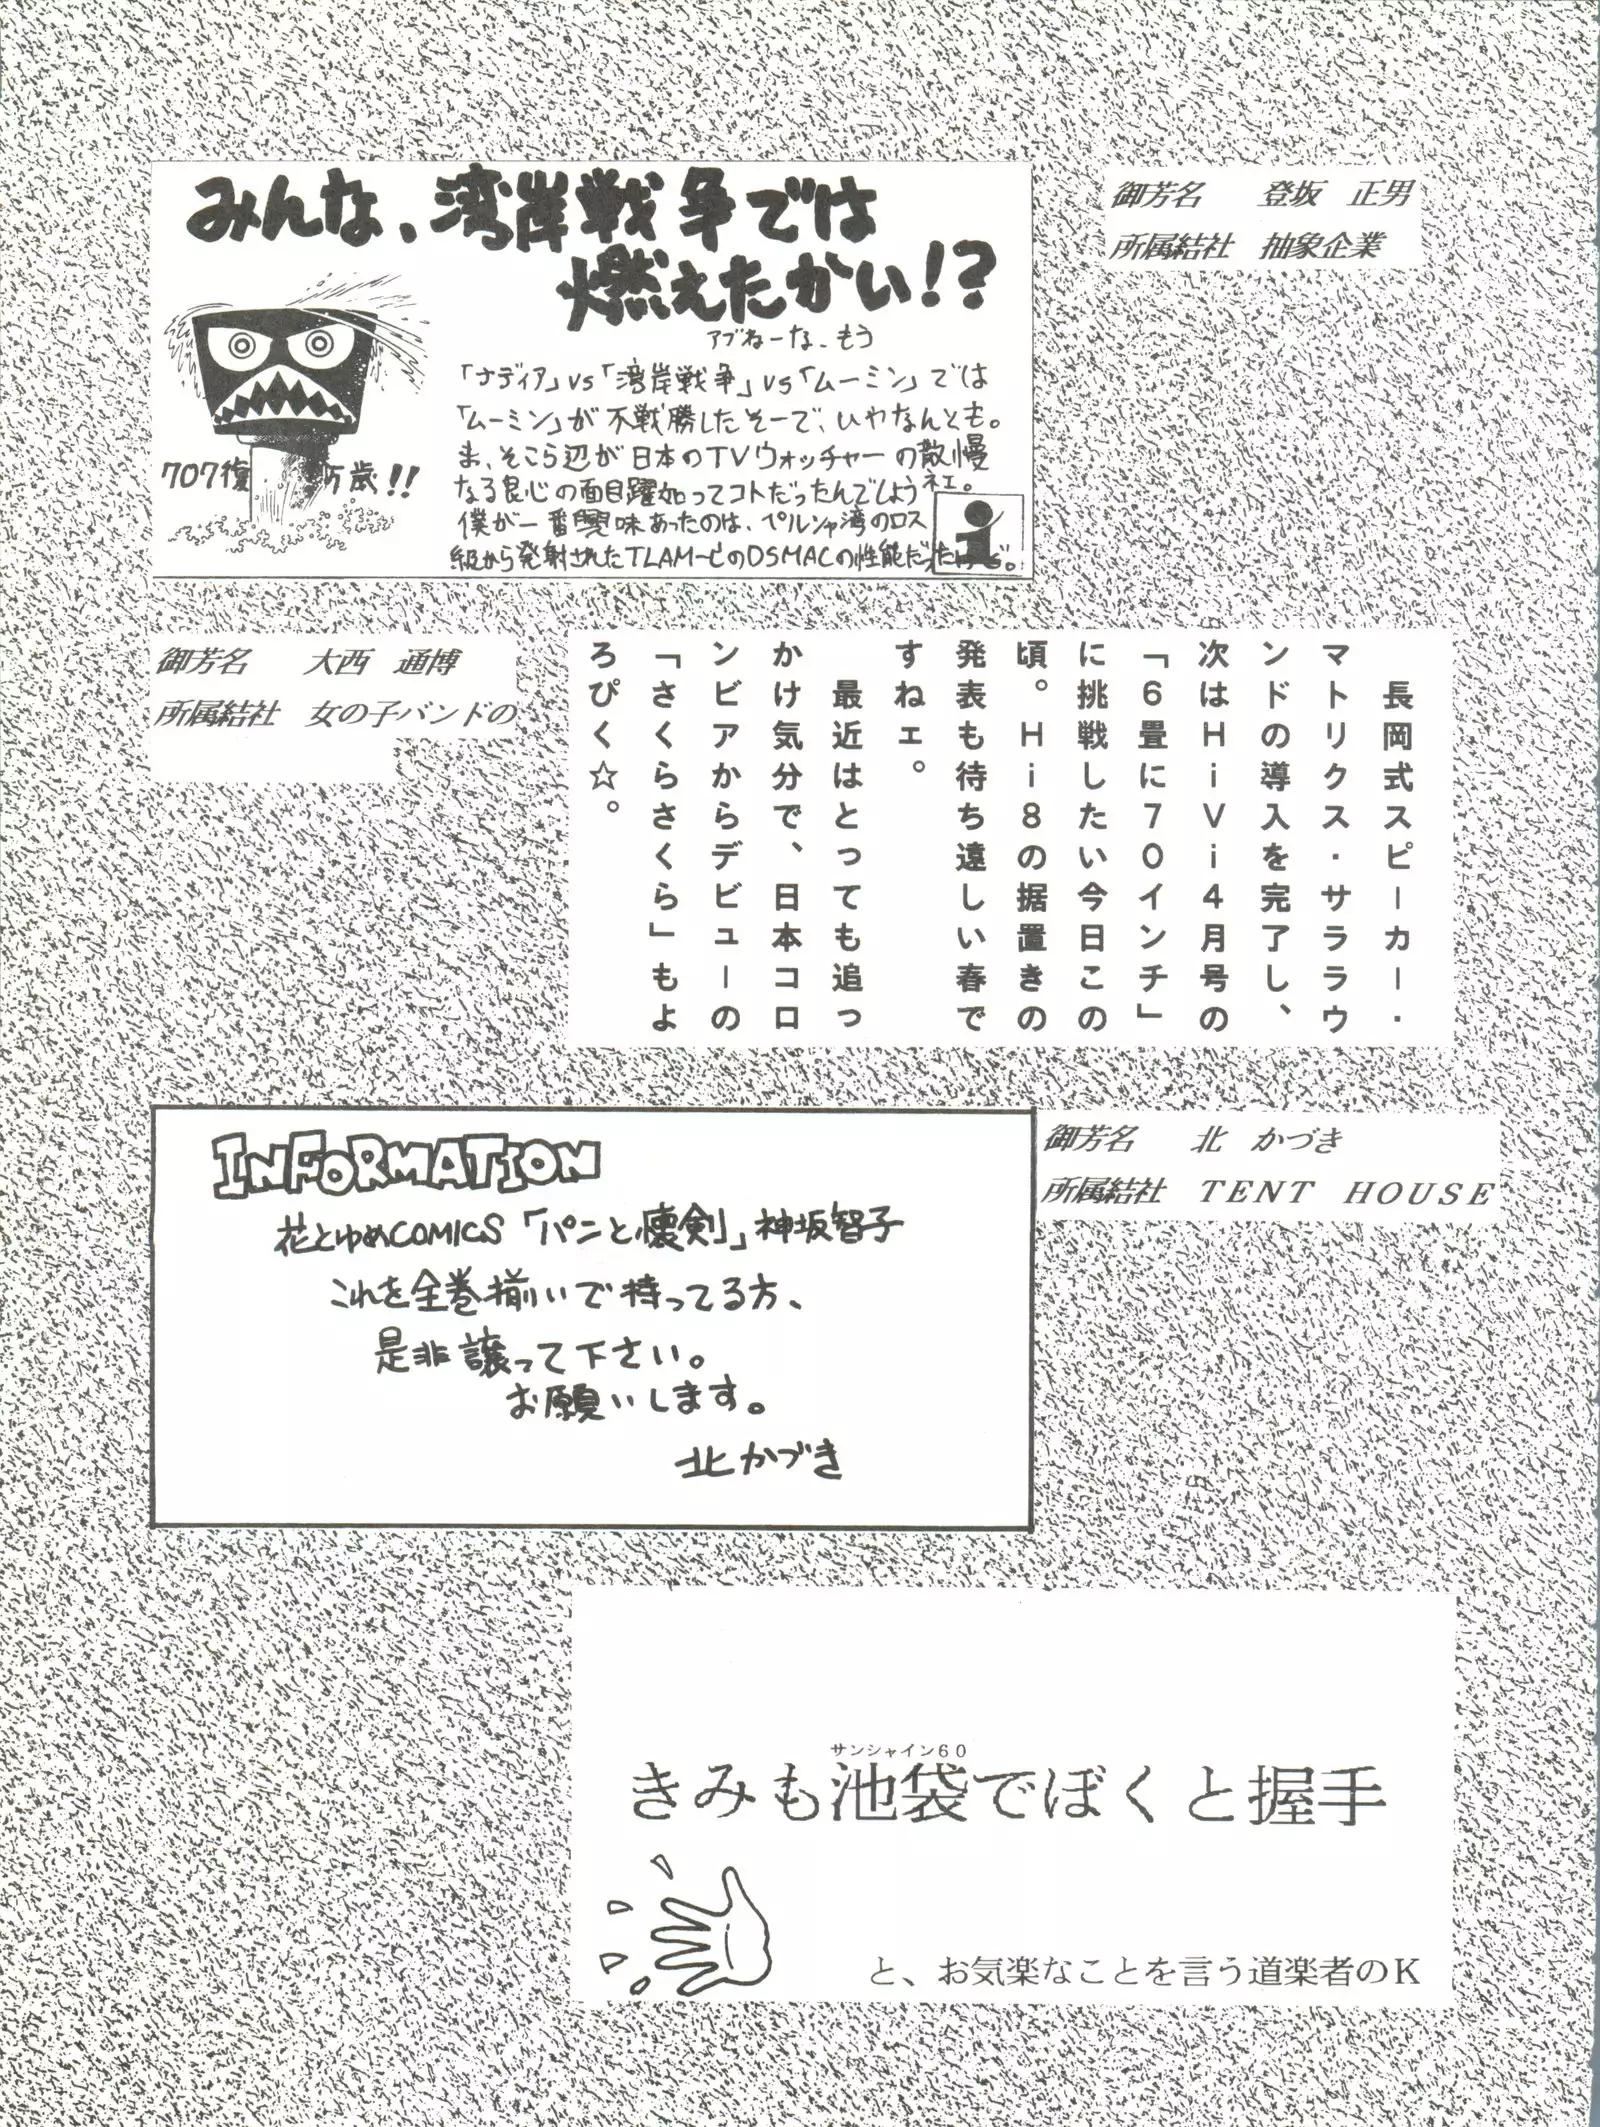 みんな、湾岸戦争では
燃えたかい!?
アブねーな、もう
「ナディア」vs「湾岸戦争」vs「ムーミン」では
「ムーミン」が不戦勝したそーで、いやなんとも。
ま、そこら辺が日本のTVウォッチャーの散慢
なる良心の面目躍如ってコトだったんでしょうネェ。
僕が一番興味あったのは、ペルシャ湾のロス
級から発射されたTLAM-CのDSMACの性能だった
707復 万歳!!
i
御芳名 登坂 正男
所属結社 抽象企業
御芳名 大西 通博
所属結社 女の子バンドの
長岡式スピーカー・
マトリクス・サラウ
ンドの導入を完了し、
次はHiVi4月号の
「6畳に70インチ」
に挑戦したい今日この
頃。Hi8の据置きの
発表も待ち遠しい春で
すねェ。
最近はとっても追っ
かけ気分で、日本コロ
ンビアからデビューの
「さくらさくら」もよ
ろぴく☆。
御芳名 北 かづき
所属結社 TENT HOUSE
INFORMATION
花とゆめCOMICS「パンと懐剣」神坂智子
これを全巻揃いで持ってる方、
是非譲って下さい。
お願いします。
北かづき
サンシャイン60
きみも池袋でぼくと握手
と、お気楽なことを言う道楽者のK